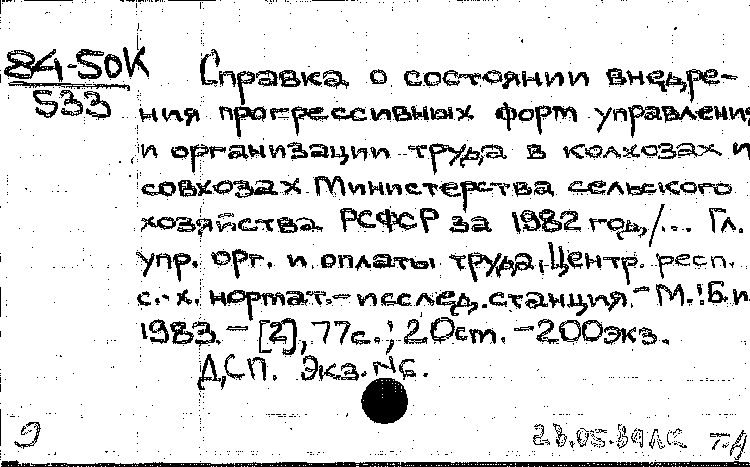 84-50К
533
Справка о состоянии внедре-
ния прогрессивных форм управления
и организации труда в колхозах и
совхозах Министерства сельского
хозяйства РСФСР за 1982 год/... Гл.
упр. орг. и оплаты труда, Центр. респ.
с.-х. нормат.-исслед. станция.- М.: Б.и
1983.- [2], 77с.; 20ст. -200экз.
ДСП. Экз. №6.
9